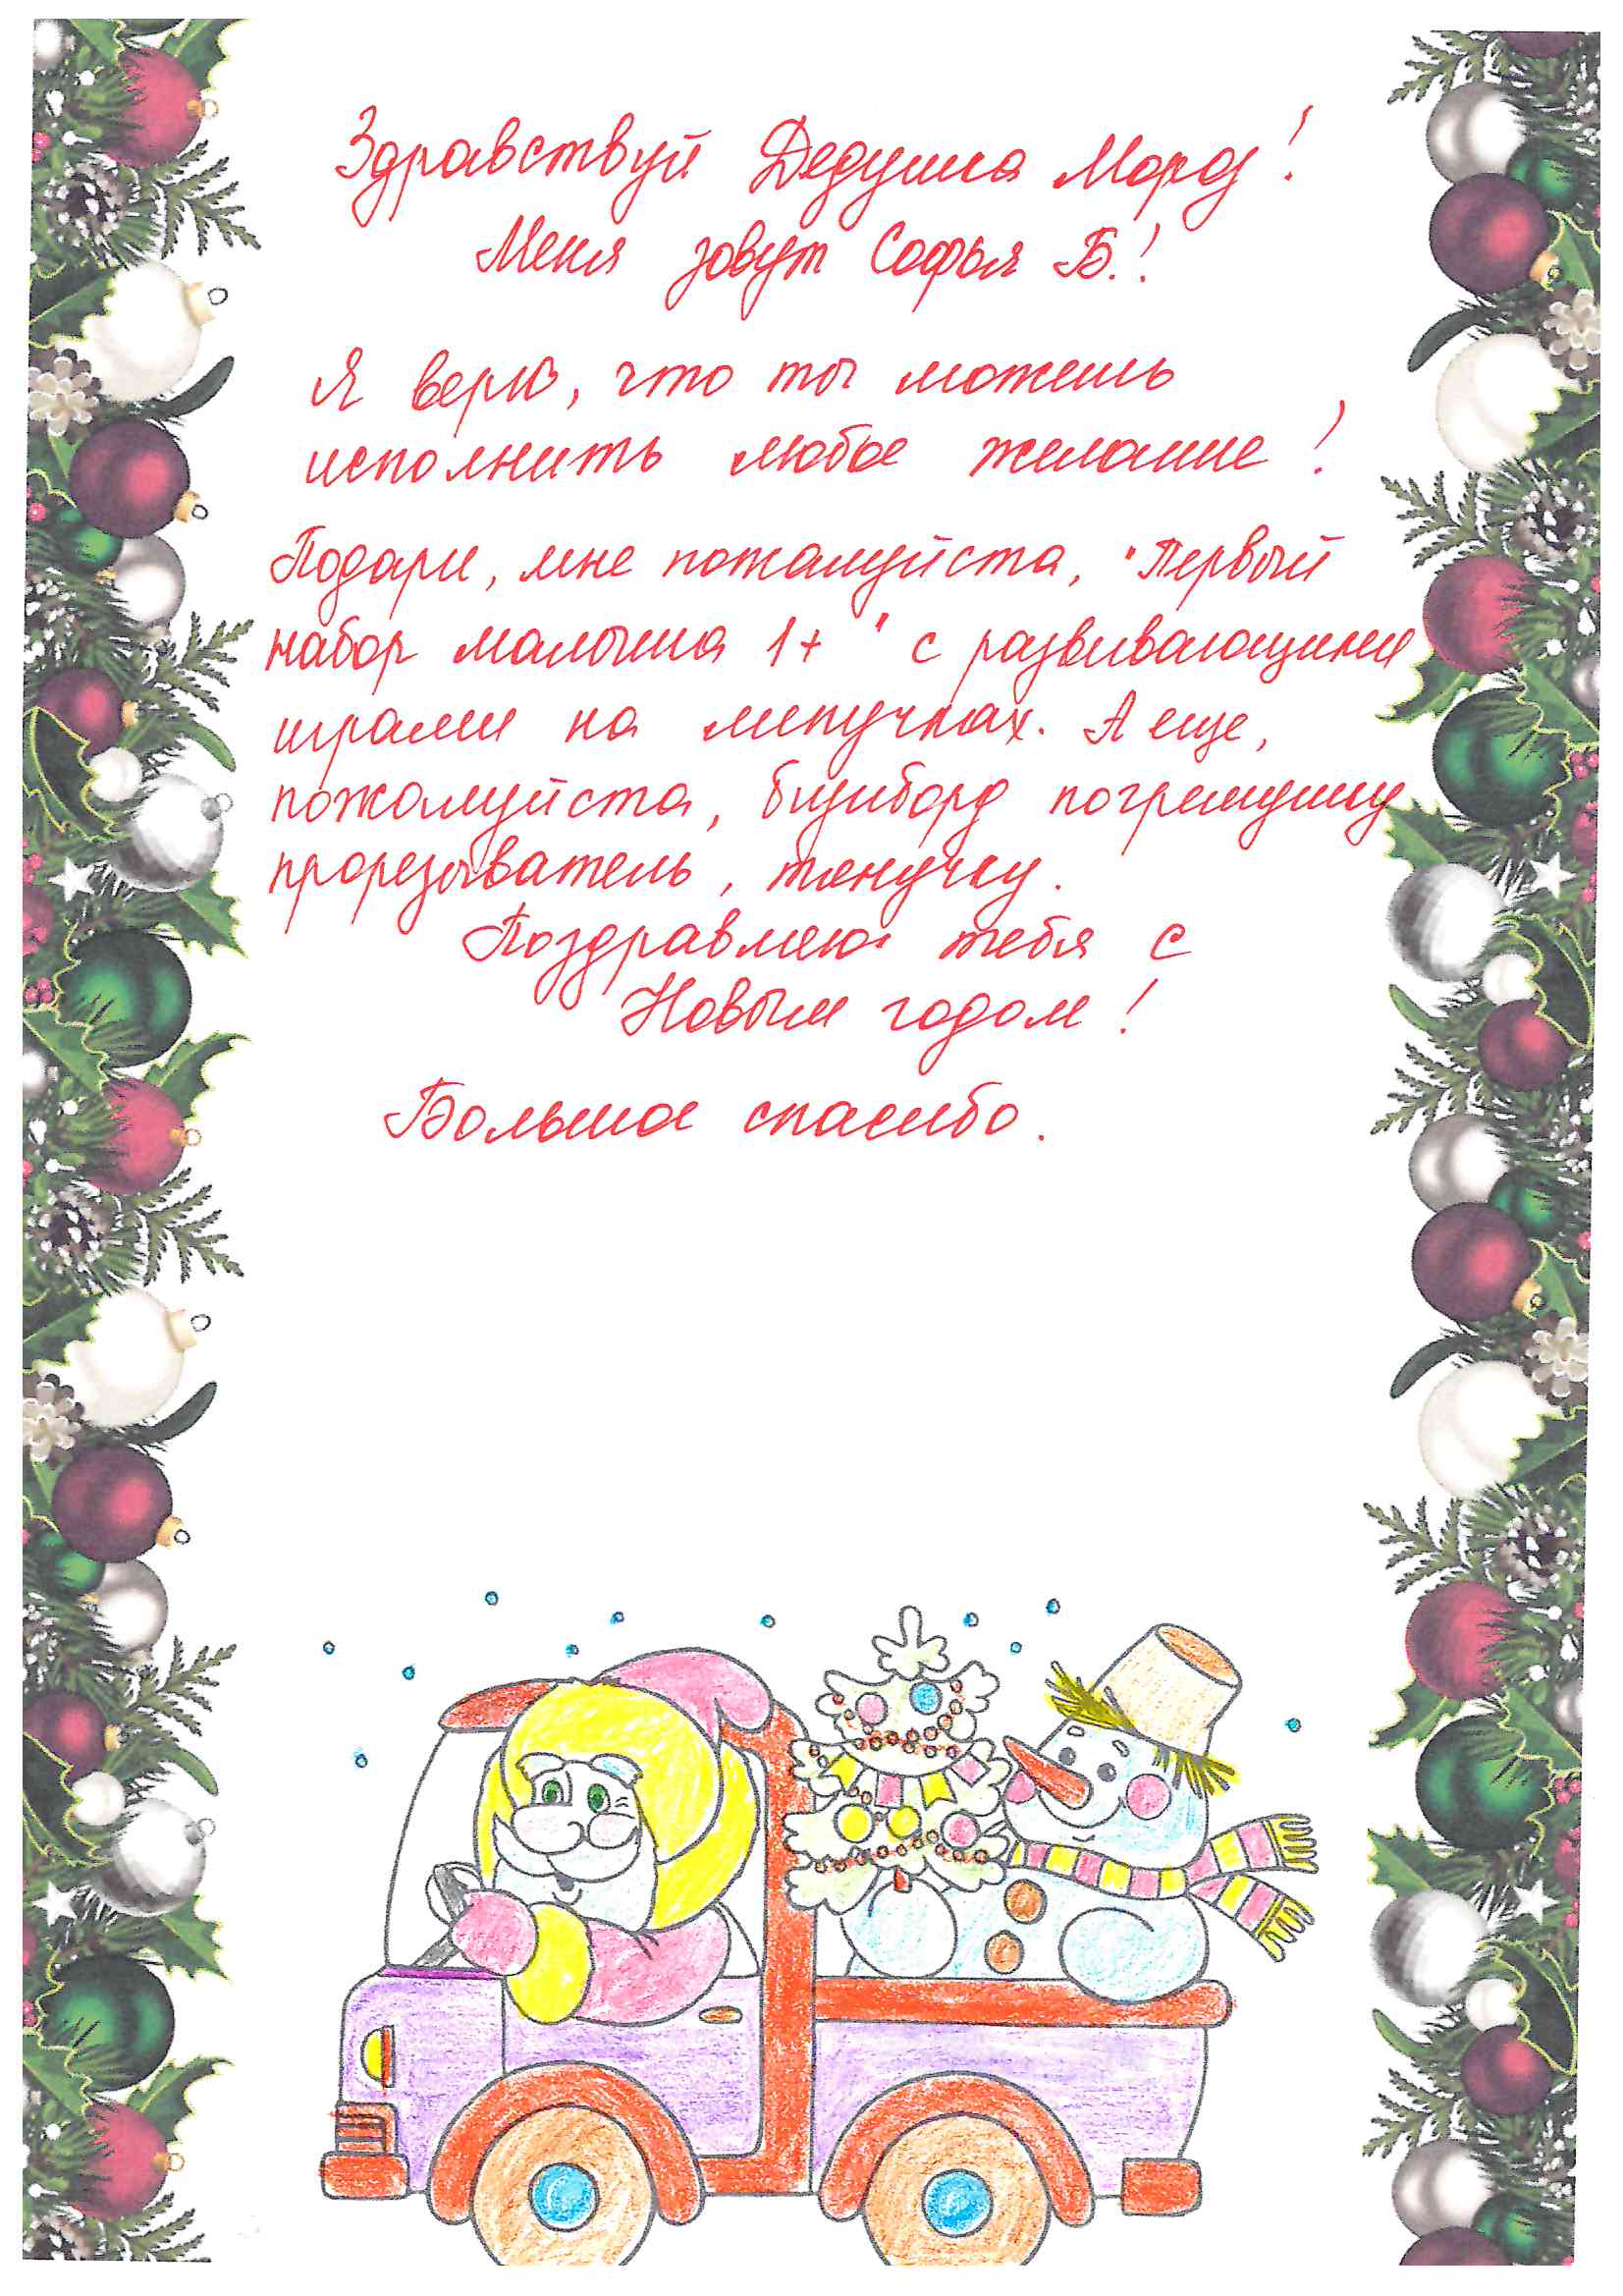 Здравствуй Дедушка Мороз!
Меня зовут Софья Б.!
Я верю, что ты можешь
исполнить любое желание!
Подари, мне пожалуйста, "Первый
набор малыша 1+" с развивающими
играми на липучках. А еще,
пожалуйста, бизиборд погремушку
прорезыватель, тянучку.
Поздравляю тебя с
Новым годом!
Большое спасибо.